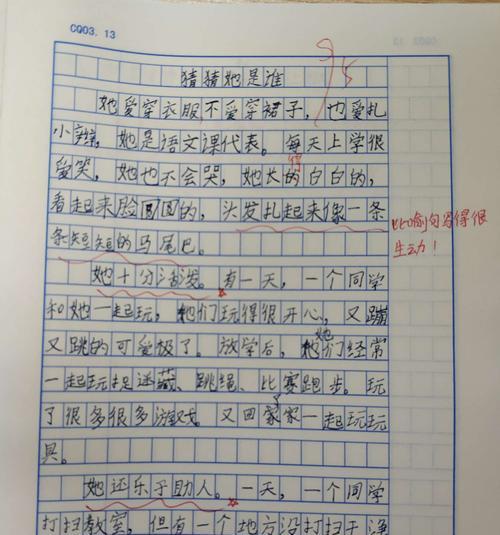 CQ03.13
95
猜猜她是谁
她爱穿衣服,不爱穿裙子,也爱扎
小辫,她是语文课代表。每天上学很
爱笑,她也不会哭,她长的白白的,
得
看起来脸圆圆的,头发扎起来像一条
条短短的马尾巴。
比喻句写得很
生动!
她十分活泼。有一天,一个同学
和她一起玩,她们玩得很开心,又蹦
又跳的可爱极了。放学后,她们经常
一起玩捉迷藏、跳绳、比赛跑步。玩
了很多很多游戏。又回家家一起玩玩
具。
她还乐于助人。一天,一个同学
打扫教室,但有一个地方没打扫干净